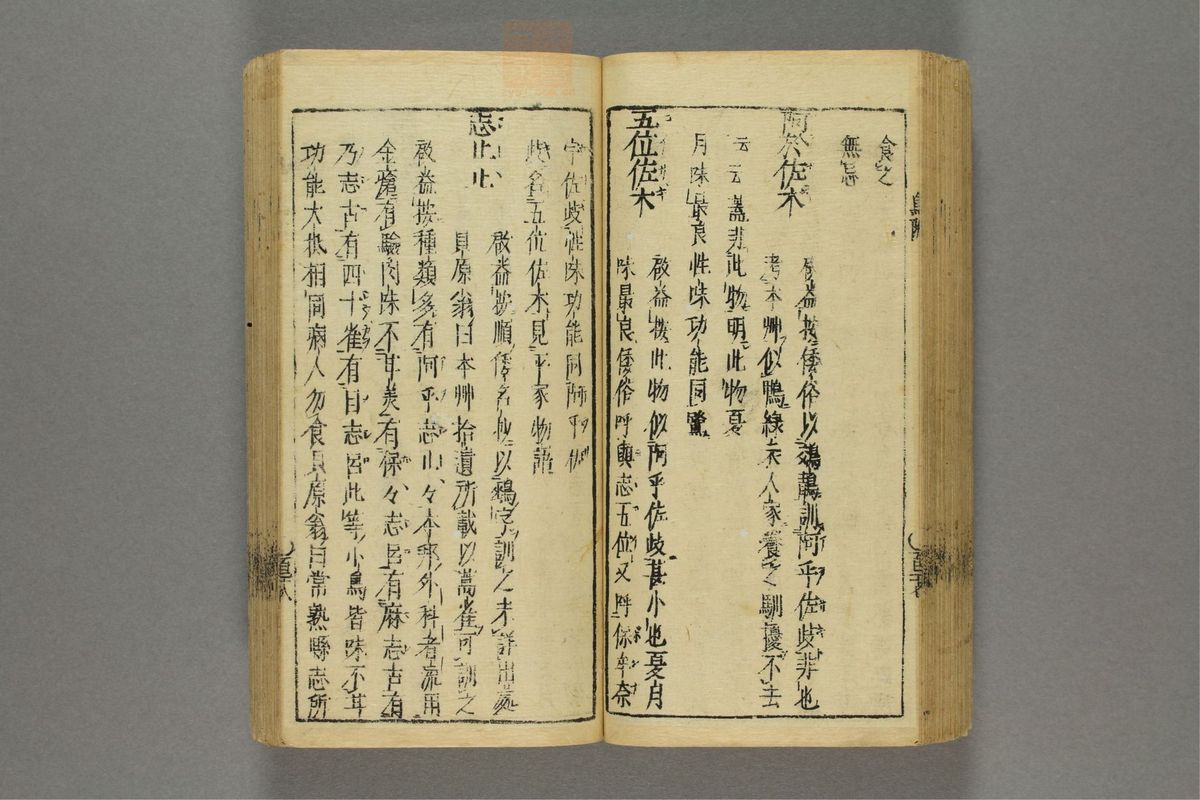 食之
無忌
阿於佐木
啟益按倭俗以鵁鶄訓阿乎佐岐非也
考本艸似鴨綠衣人家養之馴擾不去
云云蓋非此物明此物夏
月味最良性味功能同鷺
五位佐木
啟益按此物似阿乎佐岐甚小也夏月
味最良倭俗呼真志五位又呼保牟奈
宇佐岐性味功能同阿乎佐
岐名五位佐木見平家物語
志止止
啟益按順倭名抄以鵐字訓之未詳出處
貝原翁曰本艸拾遺所載以蒿雀可訓之
啟益按種類多有阿乎志止々本邦外科者流用
金瘡有驗肉味不甘美有保々志呂有麻志古有
乃志古有四十雀有目志呂此等小鳥皆味不甘
功能大抵相同病人勿食貝原翁曰常熟縣志所